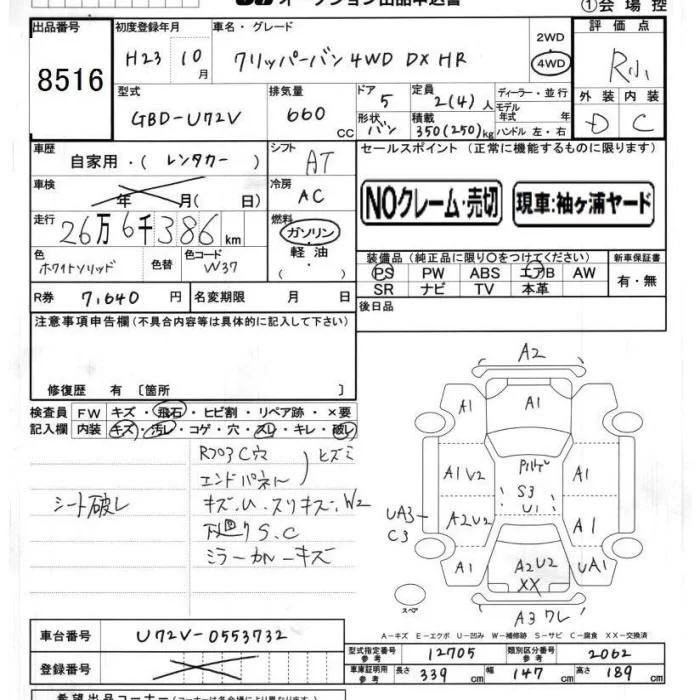 オークション出品申込書
①会場控
出品番号 8516
初度登録年月 H23 10月
車名・グレード クリッパーバン 4WD DX HR
2WD
4WD
評価点 R小
外装 内装
D C
型式 GBD-U72V
排気量 660 CC
ドア 5
形状 バン
定員 2(4)人
積載 350(250)kg
ディーラー・並行
モデル年式 年式
ハンドル 左・右
車歴 自家用・(レンタカー)
シフト AT
車検 年 月( 日)
冷房 AC
走行 26万6千386km
燃料 ガソリン
軽油
( )
色 ホワイトソリッド 色替 色コード W37
R券 7,640円 名変期限 月 日
セールスポイント(正常に機能するものに限ります)
NOクレーム・売切
現車:袖ヶ浦ヤード
装備品(純正品に限り○をつけてください)
新車保証書
PS PW ABS エアB AW
SR ナビ TV 本革
有・無
後日品
注意事項申告欄(不具合内容等は具体的に記入して下さい)
修復歴 有〔箇所 〕
検査員 FW キズ・飛石・ヒビ割・リペア跡・×要
記入欄 内装 キズ・汚レ・コゲ・穴・スレ・キレ・破レ
シート破レ
Rフロア C穴
エンドパネル
ヒズミ
キズ.U.スリキズ.W2
下廻り S.C
ミラーカバーキズ
A2
A1 A1 A1
A1 V2
S3
U1
A1
UA3
C3
A2U2
A1
A1
A2U2
XX
UA1
スペア
A3 ワレ
A-キズ E-エクボ U-凹み W-補修跡 S-サビ C-腐食 XX-交換済
車台番号 U72V-0553732
登録番号
型式指定番号 参考 12705
類別区分番号 参考 2062
車庫証明用 参考 長さ 339cm 幅 147cm 高さ 189cm
希望出品コーナー